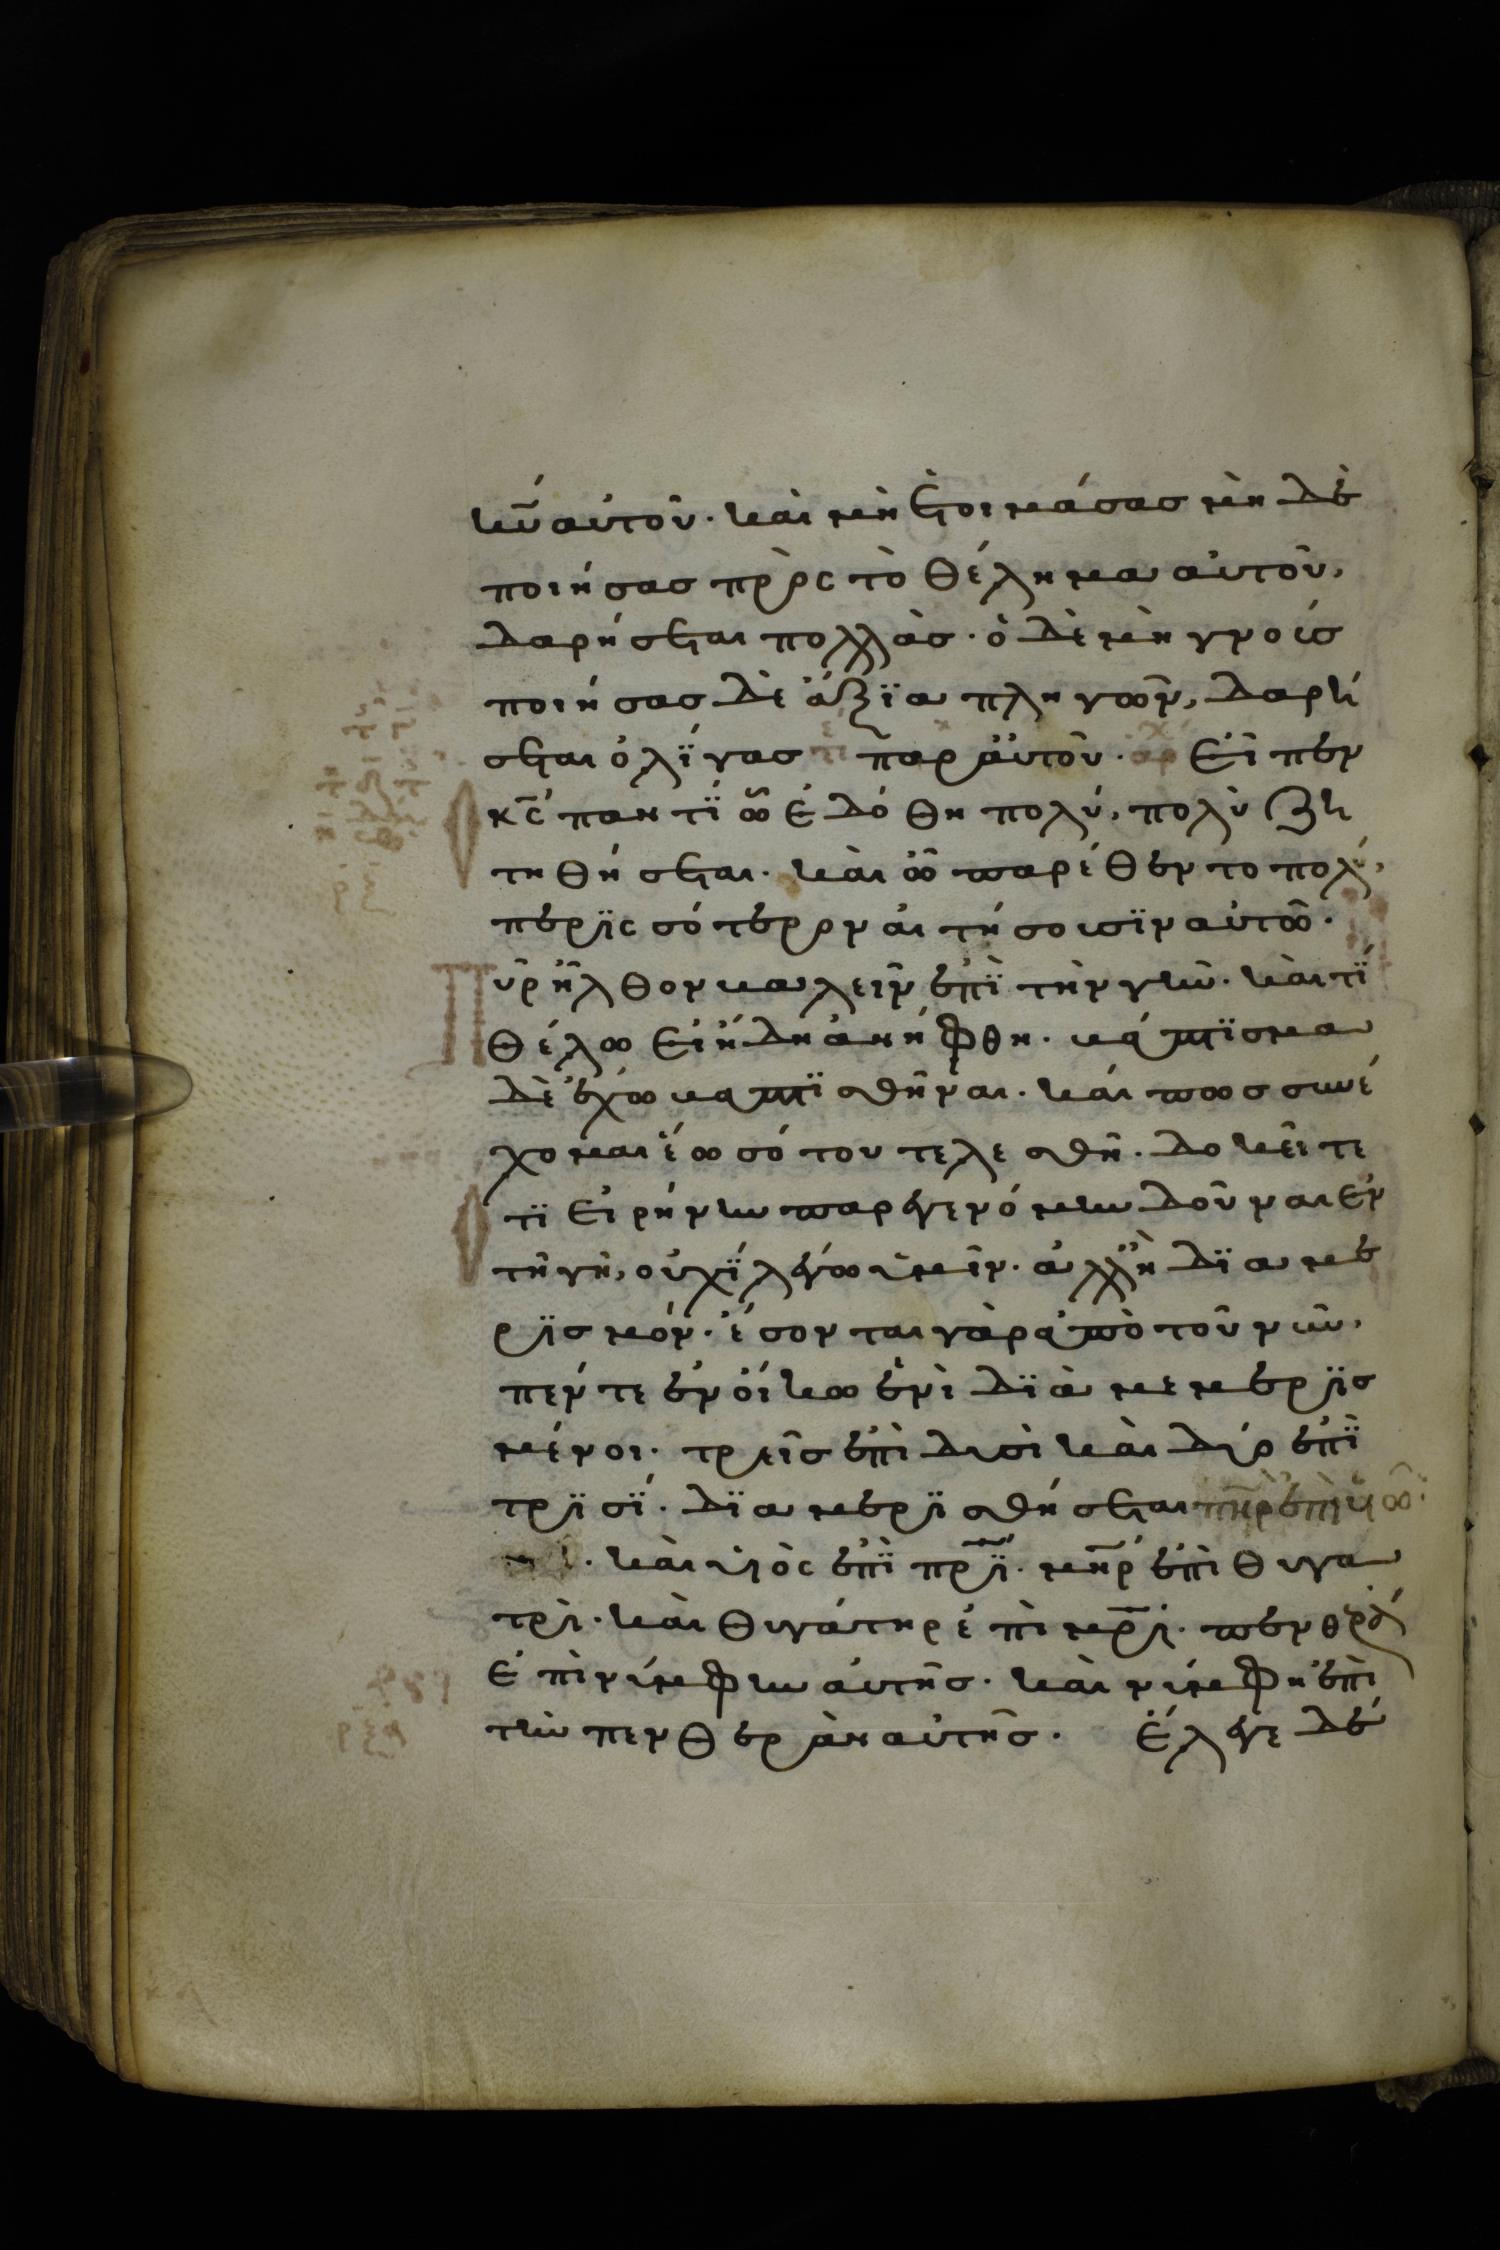 κῦ αὐτοῦ· καὶ μὴ ἑτοιμάσας μὴ δὲ
ποιήσας πρὸς τὸ θέλημα αὐτοῦ,
δαρήσεται πολλὰς· ὁ δὲ μὴ γνοὺς
ποιήσας δὲ ἄξϊα πληγῶν, δαρή
σεται ὀλΐγας τέ παρ αὐτοῦ· ἀρχ Εἶπεν
κς̄ παντῒ ὧ ἐδόθη πολύ, πολὺ ζη
τηθήσεται· καὶ ὧ παρέθεντο πολύ,
περϊσσότερον αἰτήσουσϊν αὐτῶ·
Πῦρ ἦλθον βαλεῖν ἐπῒ τὴν γὴν· καὶ τΐ
θέλω εἰ ἤδη ἀνήφθη· βάπτϊσμα
δὲ ἔχω βαπτϊσθῆναι· καὶ πῶς συνέ
χομαι ἕωσ ότου τελεσθῆ· δοκεῖτε
τϊ εἰρήνην παρεγενόμην δοῦναι ἐν
τῆ γῆ, οὐχΐ λέγω ὑμῖν· ἀλλ' ἢ δϊαμε
ρϊσμόν· ἔσονται γὰρ ἀπὸ τοῦ νῦν,
πέντε ἐν οἴκω ἑνὶ δϊὰ μεμερϊσ
μένοι· τρεῖς ἐπὶ δυσὶ καὶ δύο ἐπῒ
τρϊσΐ· δϊαμερϊσθήσεται πη̄ρ ἐπὶ υἱῶ·
καὶ υἱὸς ἐπῒ πρ̄ϊ· μη̄ρ ἐπὶ θυγα
τρὶ· καὶ θυγάτηρ ἐπὶ μρ̄ι· πενθερὰ
ἐπὶ νύμφην αὐτῆς· καὶ νύμφη ἐπὶ
τὴν πενθερὰν αὐτῆς· Ἔλεγε δὲ